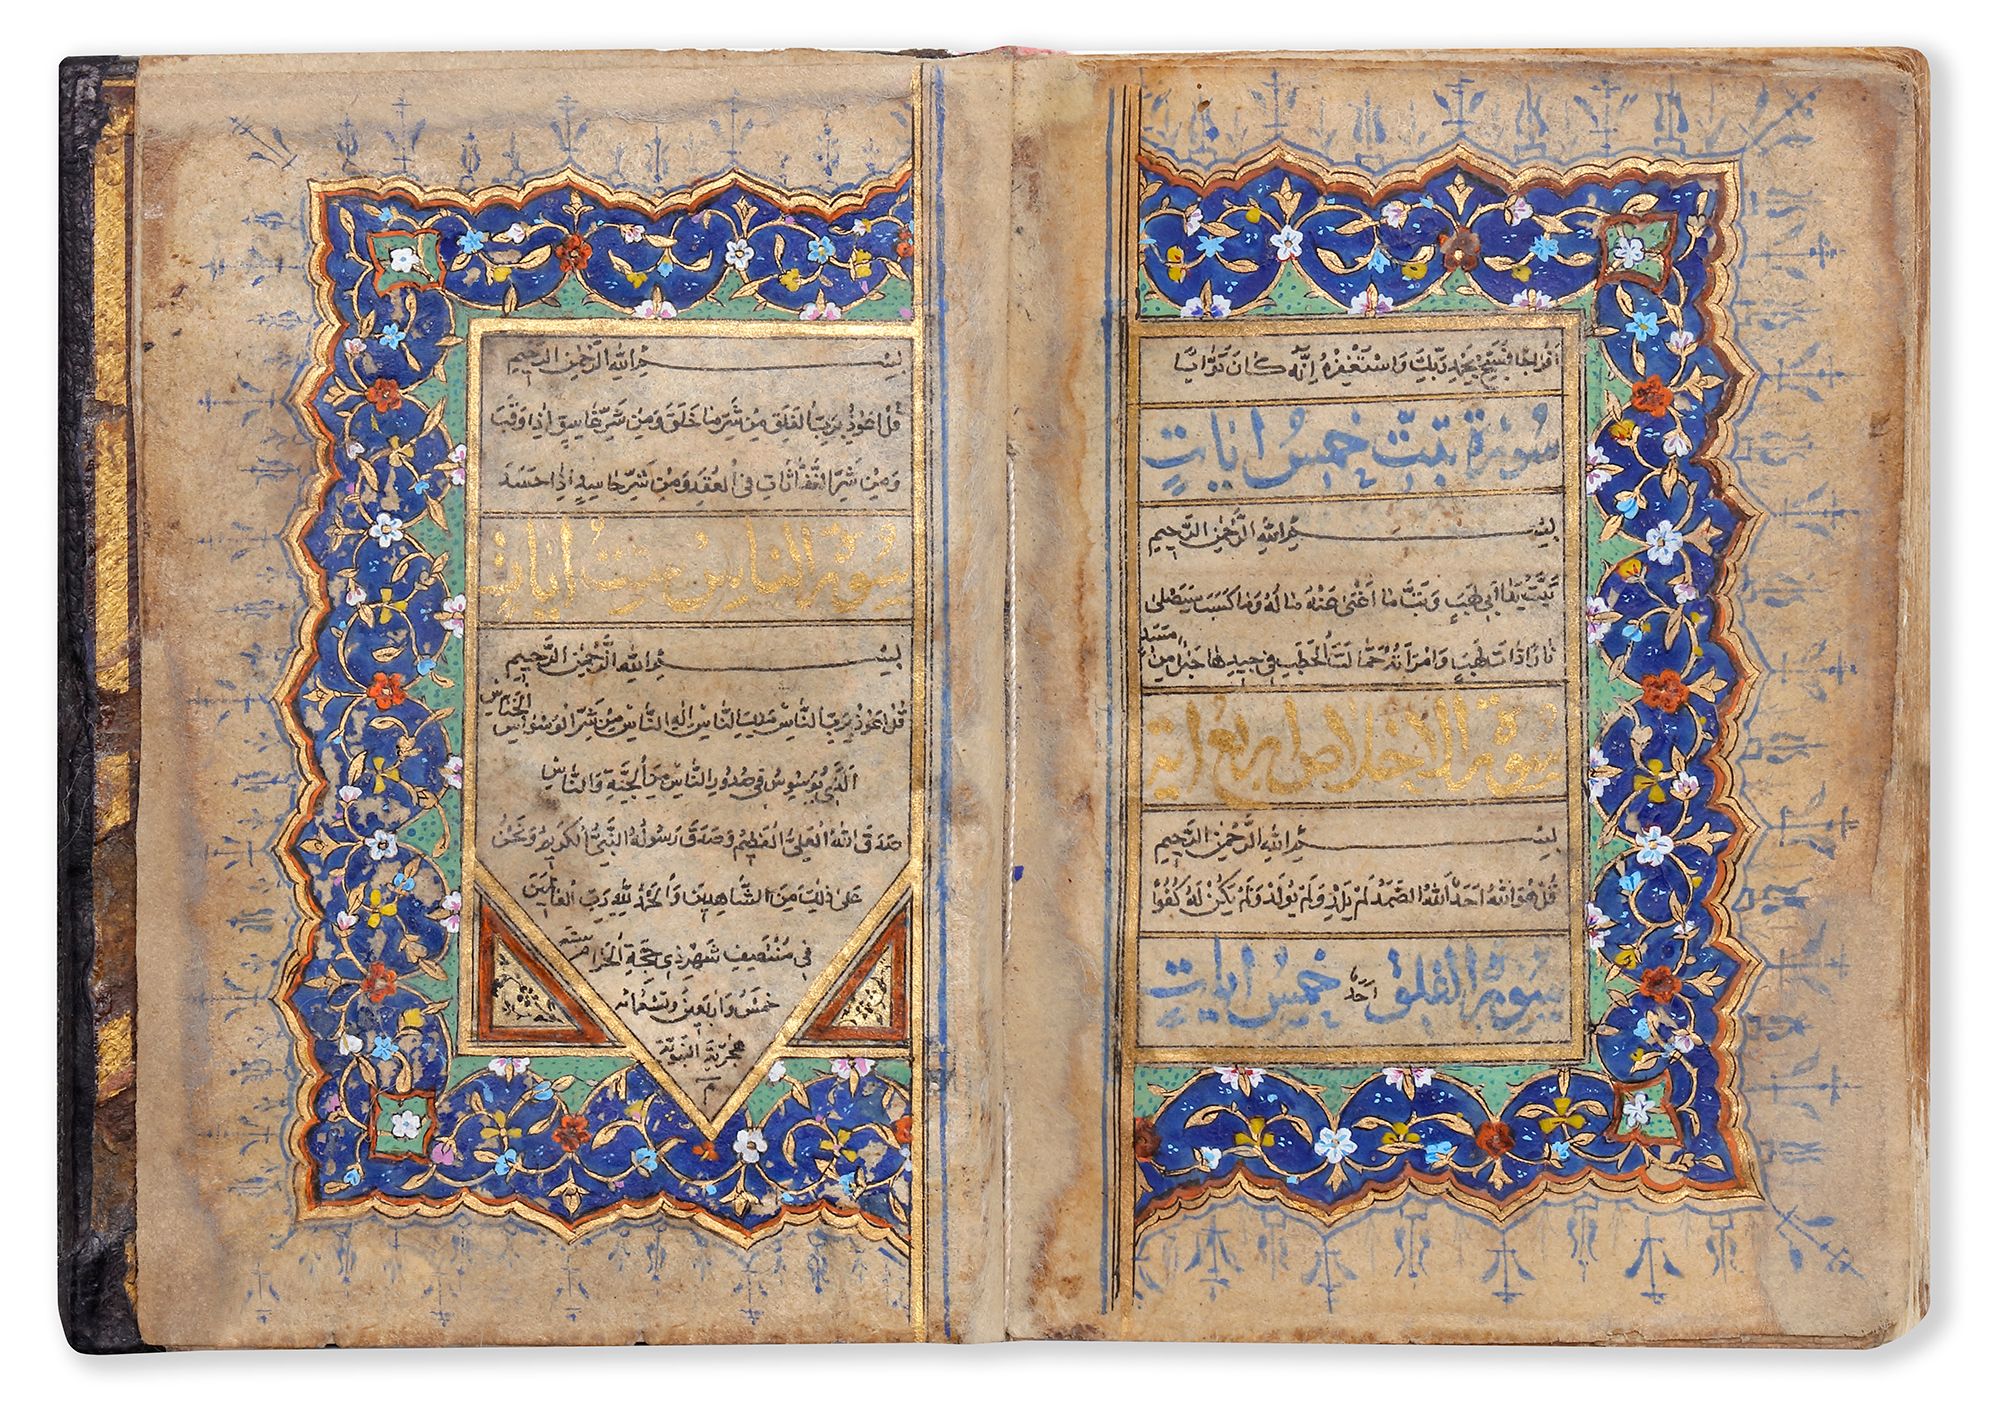 افواجا فسبح بحمد ربك واستغفره إنه كان توابا
سورة تبت خمس ايات
بسم الله الرحمن الرحيم
تبت يدا أبي لهب وتب ما أغنى عنه ماله وما كسب سيصلى
نارا ذات لهب وامرأته حمالت الحطب في جيدها حبل من مسد
سورة الاخلاص اربع اية
بسم الله الرحمن الرحيم
قل هو الله احد الله الصمد لم يلد ولم يولد ولم يكن له كفوا
احد
سورة الفلق خمس ايات
بسم الله الرحمن الرحيم
قل اعوذ برب الفلق من شر ما خلق ومن شر غاسق اذا وقب
ومن شر النفاثات في العقد ومن شر حاسد اذا حسد
سورة الناس ست ايات
بسم الله الرحمن الرحيم
قل اعوذ برب الناس ملك الناس اله الناس من شر الوسواس الخناس
الذي يوسوس في صدور الناس من الجنة والناس
صدق الله العلي العظيم وصدق رسوله النبي الكريم ونحن
على ذلك من الشاهدين والحمد لله رب العالمين
في منتصف شهر ذي حجة الحرام سنة
خمس واربعين وتسعمائه
هجرية النبوية